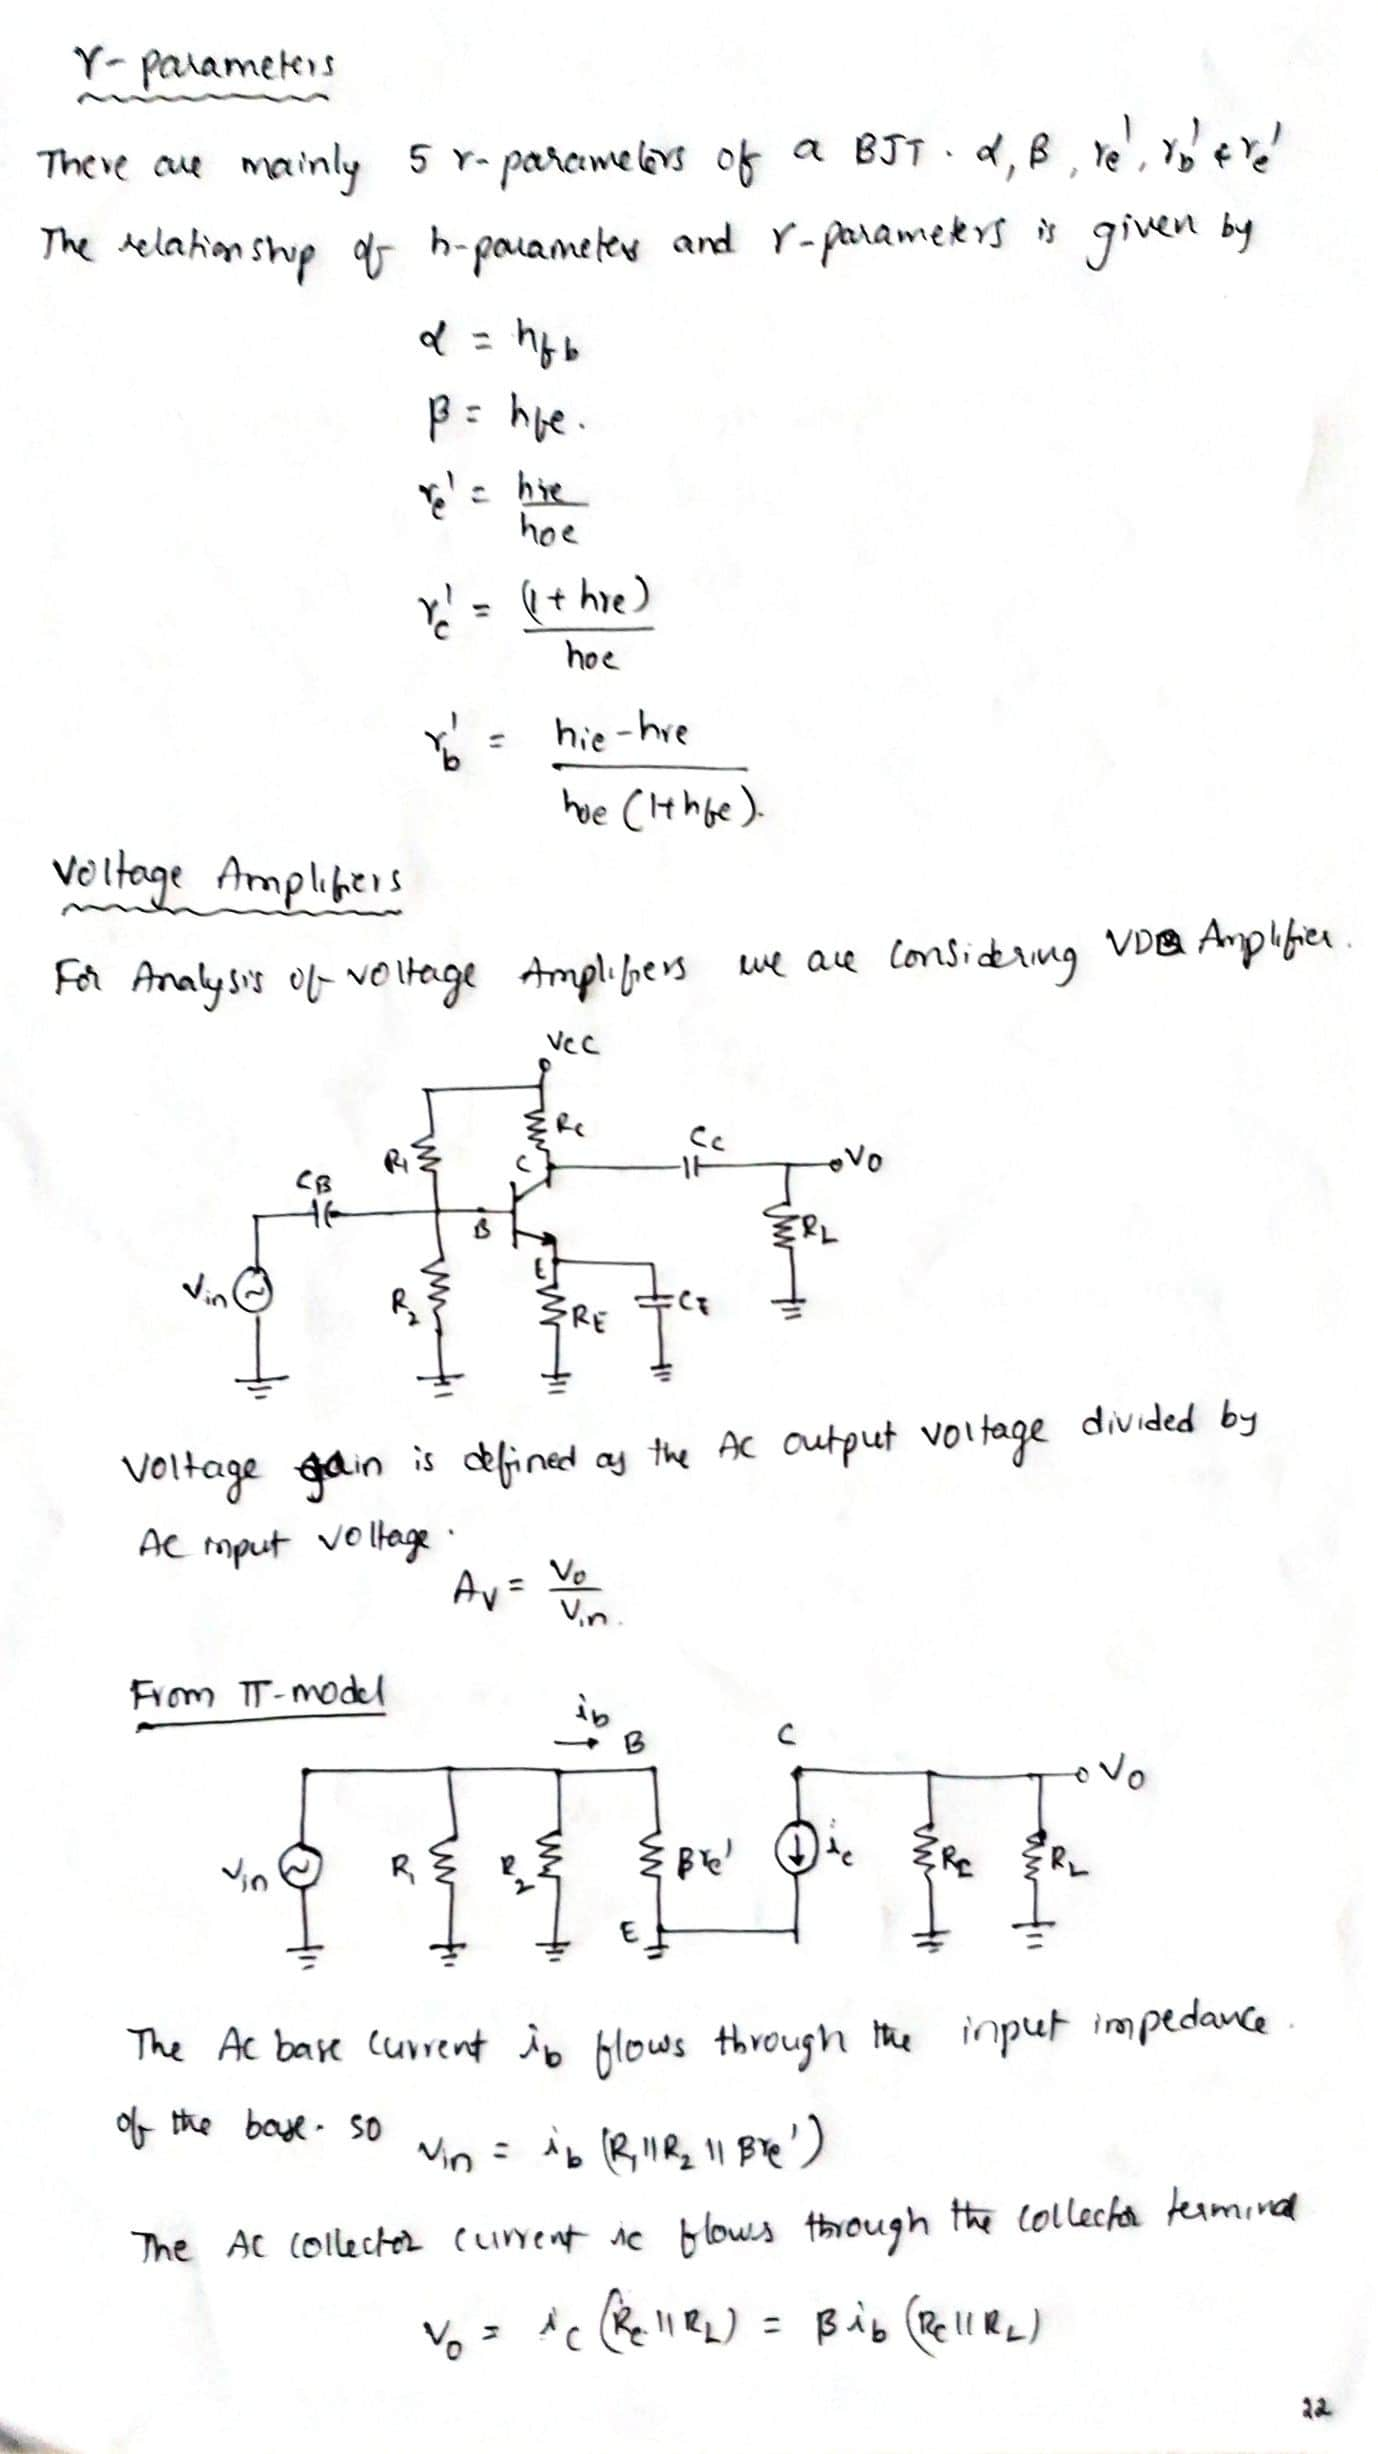 r-parameters
There are mainly 5 r-parameters of a BJT. α, β, re', rb' & re'
The relationship of h-parameters and r-parameters is given by
α = hfb
β = hfe.
re' = hre / hoe
rc' = (1+hre) / hoe
rb' = hie-hre / hoe (1+hfe).
Voltage Amplifiers
For Analysis of voltage Amplifiers we are considering VDB Amplifier.
VCC
RC
R1
C
CC
VO
CB
B
RL
Vin
R2
E
RE
CE
Voltage gain is defined as the AC output voltage divided by
AC input voltage.
AV = Vo / Vin.
From π-model
ib
B
C
Vo
Vin
R1
R2
βre'
ic
RC
RL
E
The AC base current ib flows through the input impedance.
of the base. so
Vin = ib (R1||R2 || βre')
The AC collector current ic flows through the collector terminal
Vo = ic (Rc || RL) = β ib (Rc || RL)
22